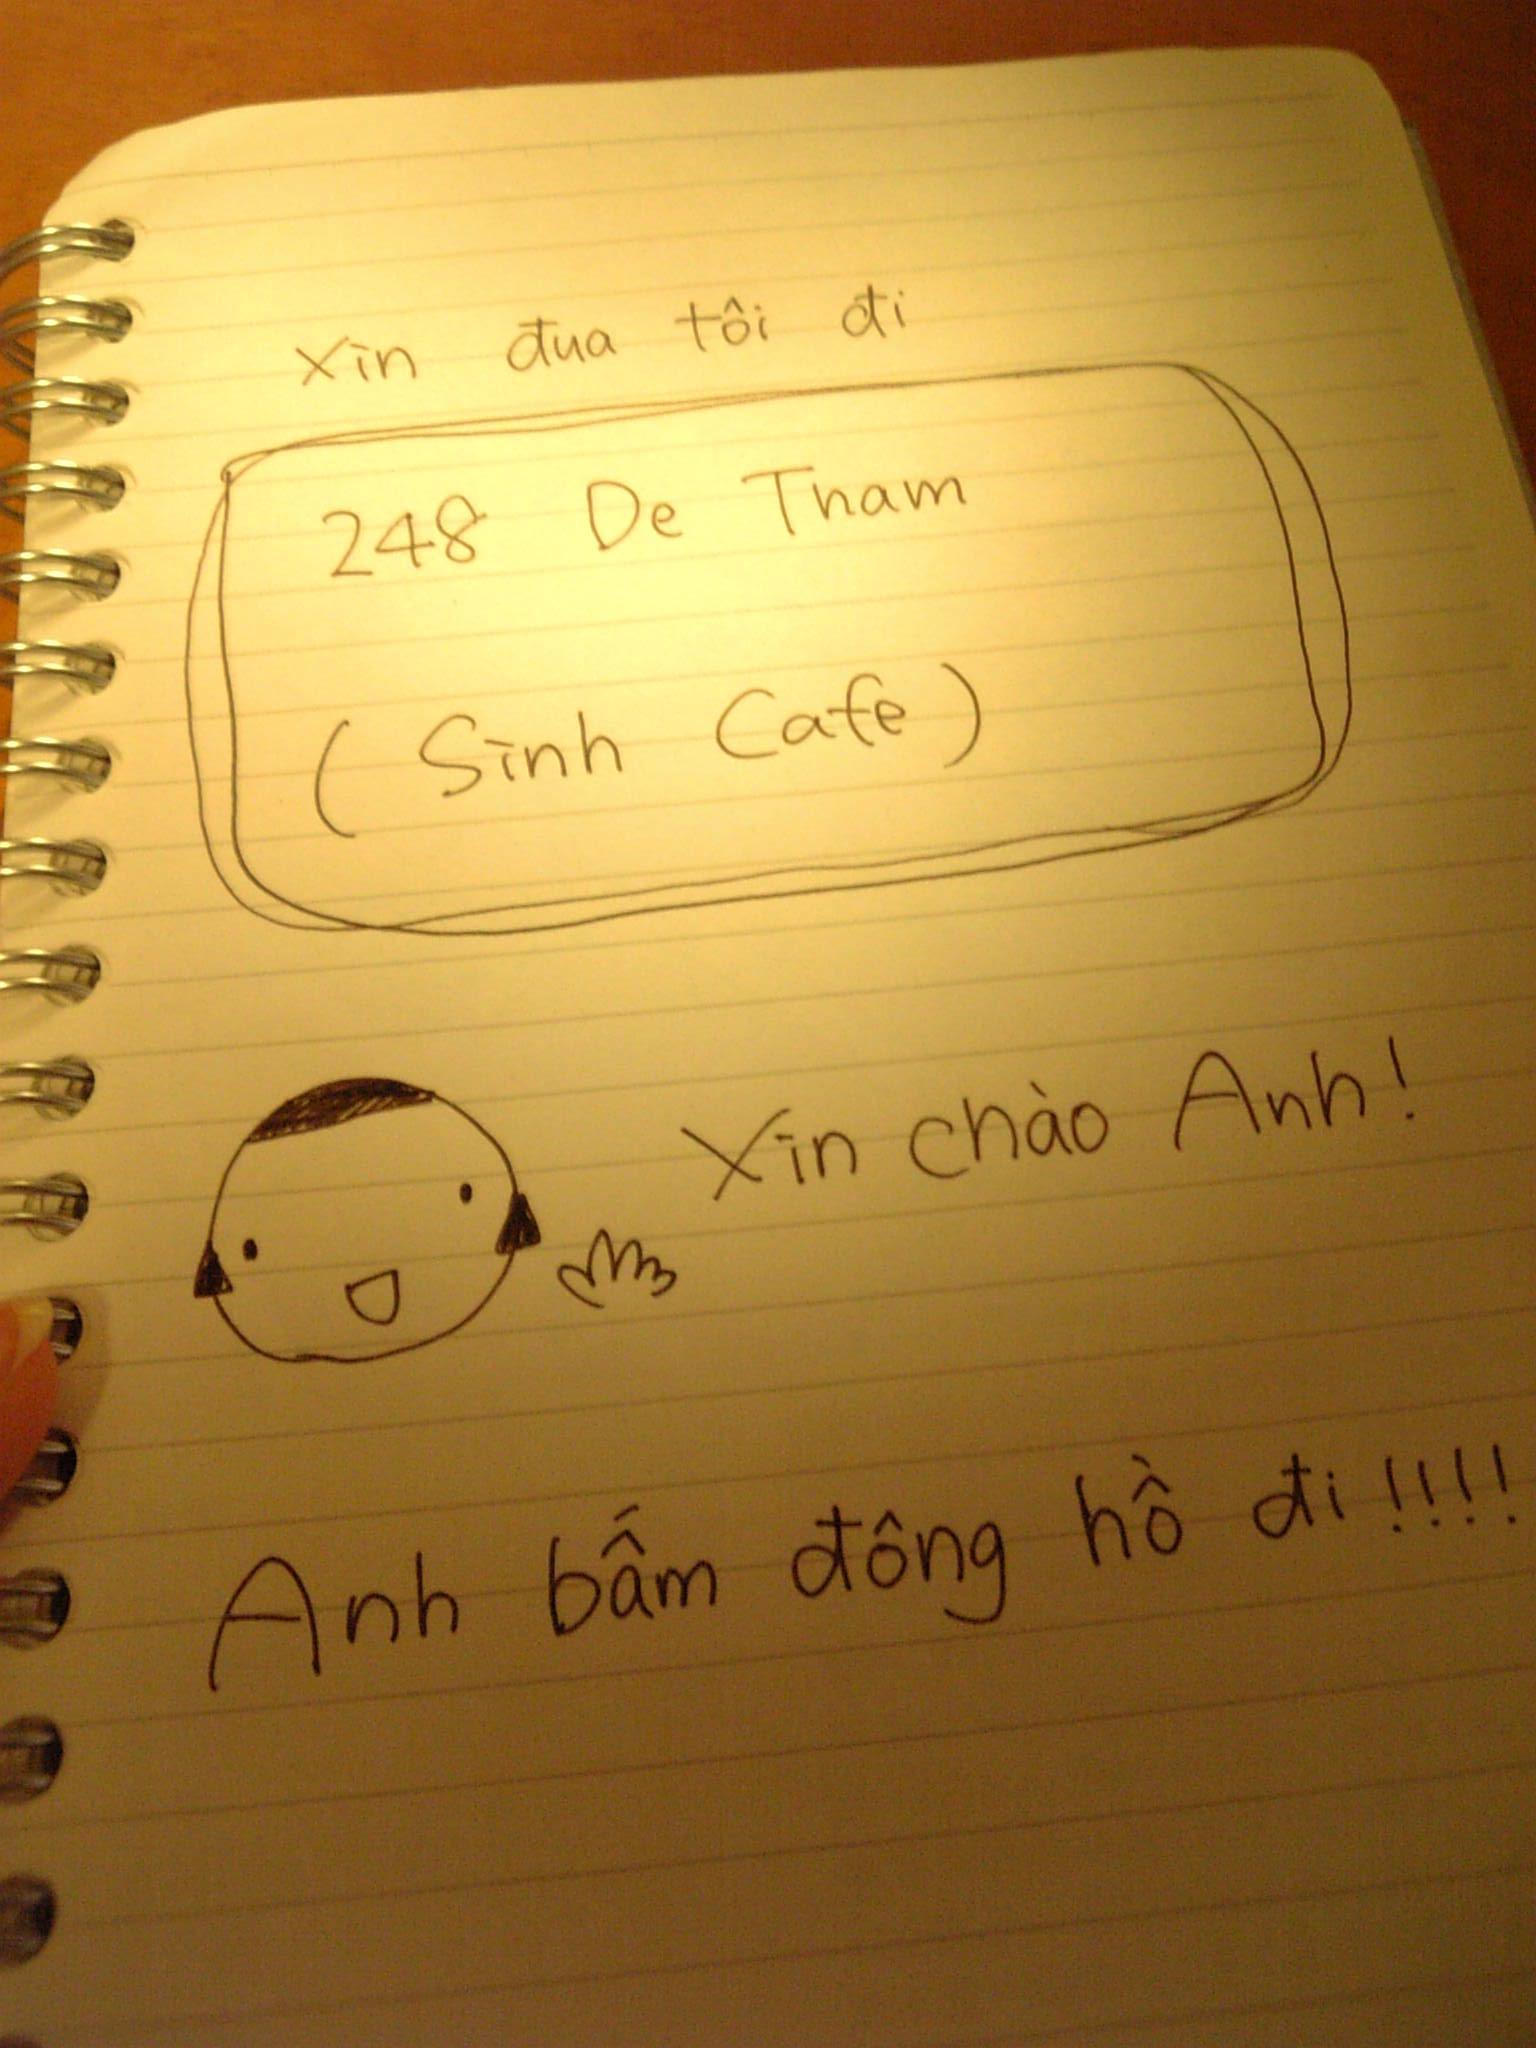 Xìn đua tôi đi
248 De Tham
(Sình Cafe)
Xìn chào Anh!
Anh bấm đông hồ đi!!!!